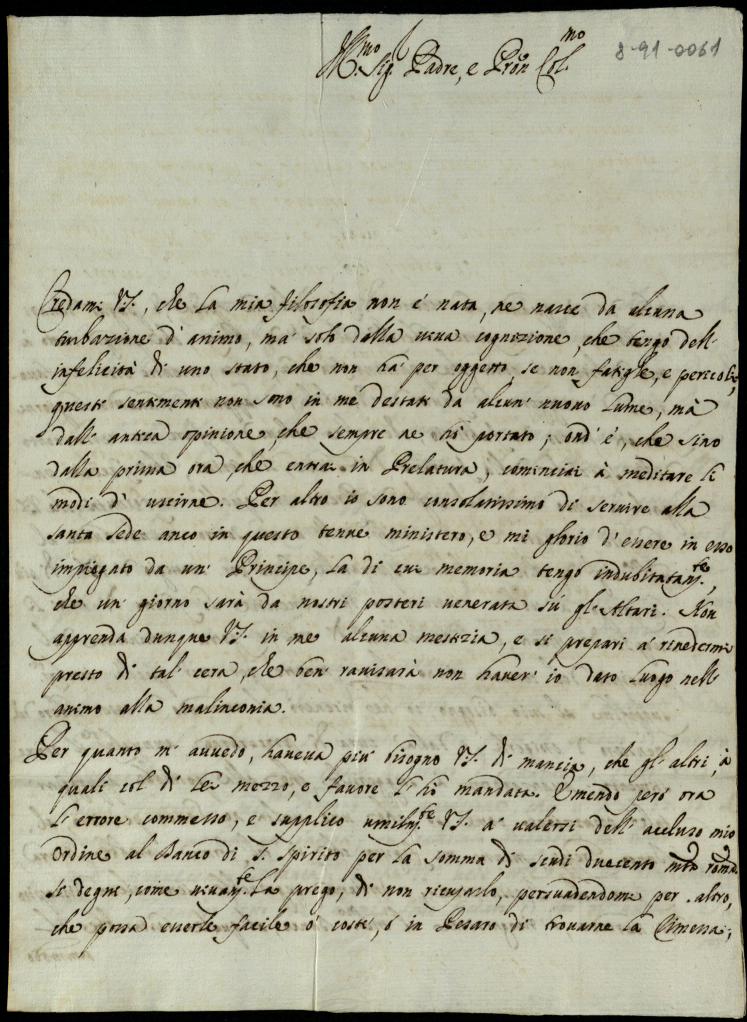 8-91-0061
Ill.mo Sig.r Padre, e Pron Col.mo
Credami V.S., che la mia filosofia non è nata, ne nasce da alcuna
turbazione d' animo, ma solo dalla viva cognizione, che tengo dell'
infelicità di uno stato, che non hà per oggetto se non fatighe, e pericoli,
questi sentimenti non sono in me destati da alcun' nuovo lume, mà
dall' antica opinione, che sempre ne hò portato; ond' è, che sino
dalla prima ora, che entrai in Prelatura, cominciai à meditare li
modi d' uscirne. Per altro io sono consolatissimo di servire alla
santa sede anco in questo tenue ministero, e mi glorio d' essere in esso
impiegato da un' Principe, la di cui memoria tengo indubitatam.te,
che un' giorno sarà da nostri posteri venerata sù gl' Altari. Non
apprenda dunque V.S. in me alcuna mestizia, e si prepari a' rivedermi
presto di tal' cera, che ben' ravisarà non haver' io dato luogo nell'
animo alla malinconia.
Per quanto m' avvedo, haveva più bisogno V.S. di mancia, che gl' altri, à
quali col di lei mezzo, e favore l' hò mandata. Emendo però ora
l' errore commesso, e supplico umilm.te V.S. a' valersi dell' accluso mio
Ordine al Banco di S. Spirito per la somma di scudi duecento m.ta romana
si degni, come vivam.te la prego, di non ricusarlo, persuadendomi per altro,
che possa esserle facile ò costì, ò in Pesaro di trovarne la rimessa;